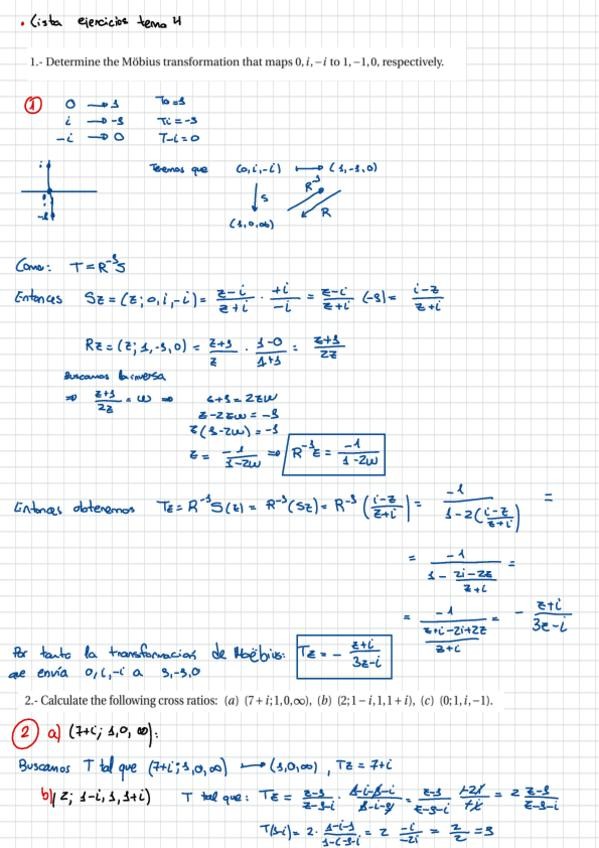 • Lista ejercicios tema 4
1.- Determine the Möbius transformation that maps 0, i, −i to 1, −1, 0, respectively.
① 0 → 1 T0 = 1
i → -1 Ti = -1
-i → 0 T-i = 0
i
Tenemos que (0, i, -i) ⟼ (1, -1, 0)
S R⁻¹ R
(1, 0, ∞)
Como: T = R⁻¹S
Entonces Sz = (z; 0, i, -i) = (z-i)/(z+i) · (+i)/(-i) = (z-i)/(z+i) (-1) = (i-z)/(z+i)
Rz = (z; 1, -1, 0) = (z+1)/z · (1-0)/(1+1) = (z+1)/(2z)
Buscamos la inversa
⇒ (z+1)/(2z) = w ⇒ z+1 = 2zw
z - 2zw = -1
z(1-2w) = -1
z = -1/(1-2w) ⇒ R⁻¹z = -1/(1-2w)
Entonces obtenemos Tz = R⁻¹S(z) = R⁻¹(Sz) = R⁻¹((i-z)/(z+i)) = -1/(1-2((i-z)/(z+i))) =
= -1/(1 - (2i-2z)/(z+i)) =
= -1/((z+i-2i+2z)/(z+i)) = - (z+i)/(3z-i)
Por tanto la transformacion de Moëbius: Tz = - (z+i)/(3z-i)
que envía 0, i, -i a 1, -1, 0
2.- Calculate the following cross ratios: (a) (7+i; 1, 0, ∞), (b) (2; 1−i, 1, 1+i), (c) (0; 1, i, −1).
② a) (7+i; 1, 0, ∞):
Buscamos T tal que (7+i; 1, 0, ∞) ⟼ (1, 0, ∞), Tz = 7+i
b) (z; 1-i, 1, 1+i) T tal que: Tz = (z-1)/(z-1-i) · (1-i-1-i)/(1-i-1) = (z-1)/(z-1-i) · = 2 (z-1)/(z-1-i)
T(1-i) = 2 · (1-i-1)/(1-i-1-i) = 2 (-i)/(-2i) = 2/2 = 1